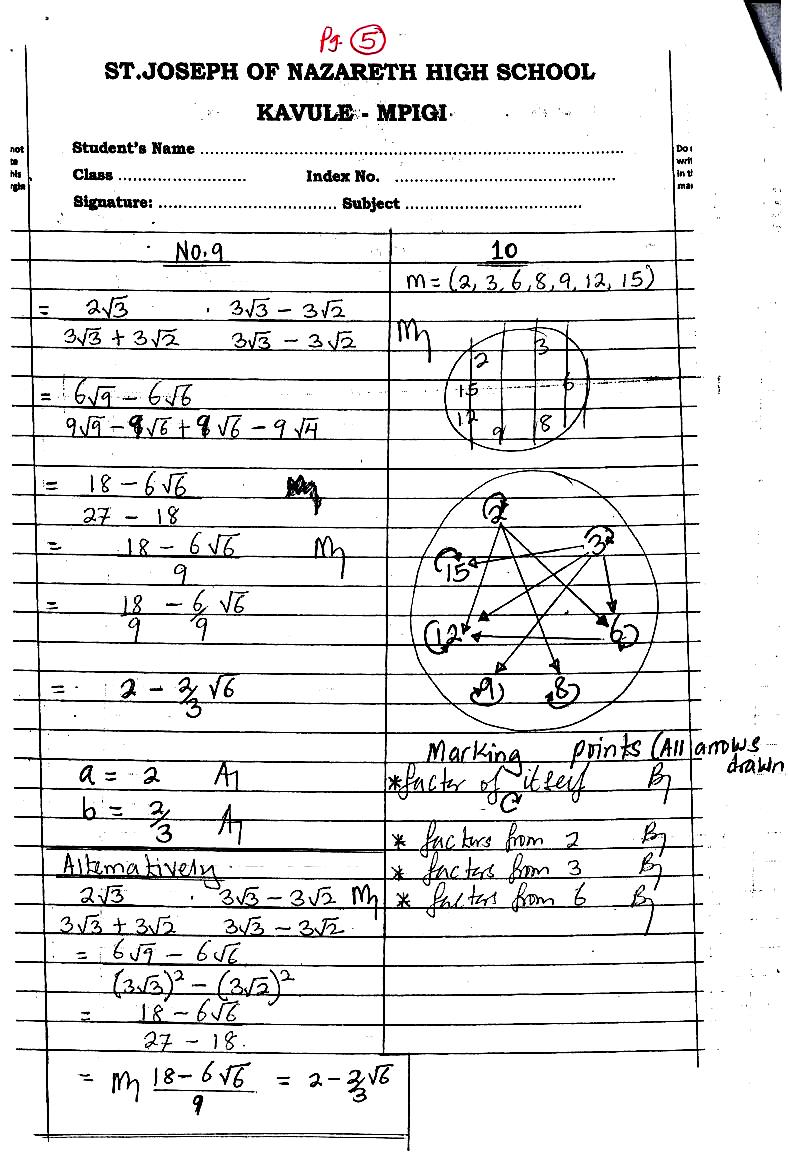 Pg. 5
ST.JOSEPH OF NAZARETH HIGH SCHOOL
KAVULE - MPIGI
Student's Name ..............................
Class ..................... Index No. ..............................
Signature: .............................. Subject ..............................
not
te
his
rgin
Do
writ
in t
ma
No. 9
= 2√3 / 3√3 + 3√2 · 3√3 - 3√2 / 3√3 - 3√2
= 6√9 - 6√6 / 9√9 - 9√6 + 9√6 - 9√4
= 18 - 6√6 / 27 - 18
= 18 - 6√6 / 9 M1
= 18/9 - 6/9 √6
= 2 - 2/3 √6
a = 2 A1
b = 2/3 A1
Alternatively
2√3 / 3√3 + 3√2 · 3√3 - 3√2 / 3√3 - 3√2 M1
= 6√9 - 6√6 / (3√3)² - (3√2)²
= 18 - 6√6 / 27 - 18.
= M1 18 - 6√6 / 9 = 2 - 2/3 √6
10
m = (2, 3, 6, 8, 9, 12, 15)
M1
2 3
15 6
12 9 8
2
3
15
12 6
9 8
Marking points (All arrows drawn
* factor of itself B1
* factors from 2 B1
* factors from 3 B1
* factors from 6 B1